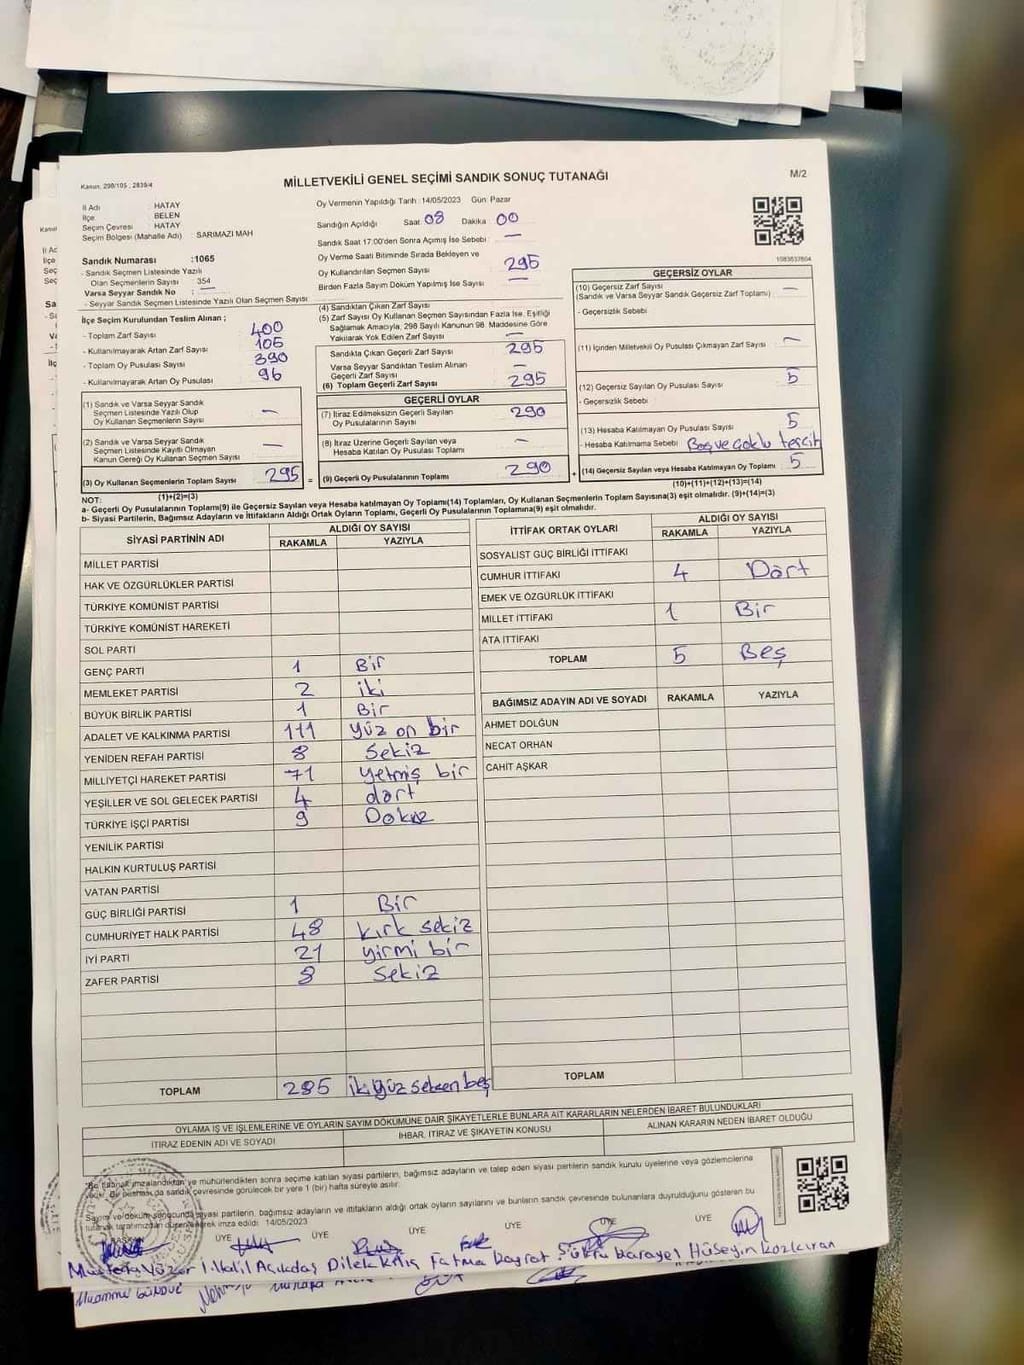 Kanun, 298/105 , 2839/4
MİLLETVEKİLİ GENEL SEÇİMİ SANDIK SONUÇ TUTANAĞI
M/2
İl Adı : HATAY
İlçe : BELEN
Seçim Çevresi : HATAY
Seçim Bölgesi (Mahalle Adı) : SARIMAZI MAH
Sandık Numarası :1065
- Sandık Seçmen Listesinde Yazılı
Olan Seçmenlerin Sayısı : 354
Varsa Seyyar Sandık No : —
- Seyyar Sandık Seçmen Listesinde Yazılı Olan Seçmen Sayısı
Oy Vermenin Yapıldığı Tarih : 14/05/2023 Gün: Pazar
Sandığın Açıldığı Saat 08 Dakika 00
Sandık Saat 17:00'den Sonra Açılmış İse Sebebi : —
Oy Verme Saati Bitiminde Sırada Bekleyen ve
Oy Kullandırılan Seçmen Sayısı 295
Birden Fazla Sayım Döküm Yapılmış İse Sayısı : —
1083637604
İlçe Seçim Kurulundan Teslim Alınan ;
- Toplam Zarf Sayısı : 400
- Kullanılmayarak Artan Zarf Sayısı : 105
- Toplam Oy Pusulası Sayısı : 390
- Kullanılmayarak Artan Oy Pusulası : 96
(1) Sandık ve Varsa Seyyar Sandık
Seçmen Listesinde Yazılı Olup
Oy Kullanan Seçmenlerin Sayısı —
(2) Sandık ve Varsa Seyyar Sandık
Seçmen Listesinde Kayıtlı Olmayan
Kanun Gereği Oy Kullanan Seçmen Sayısı —
(3) Oy Kullanan Seçmenlerin Toplam Sayısı 295 =
(1)+(2)=(3)
(4) Sandıktan Çıkan Zarf Sayısı
(5) Zarf Sayısı Oy Kullanan Seçmen Sayısından Fazla İse, Eşitliği
Sağlamak Amacıyla, 298 Sayılı Kanunun 98. Maddesine Göre
Yakılarak Yok Edilen Zarf Sayısı :
Sandıkta Çıkan Geçerli Zarf Sayısı 295
Varsa Seyyar Sandıktan Teslim Alınan
Geçerli Zarf Sayısı —
(6) Toplam Geçerli Zarf Sayısı 295
GEÇERLİ OYLAR
(7) İtiraz Edilmeksizin Geçerli Sayılan
Oy Pusulalarının Sayısı 290
(8) İtiraz Üzerine Geçerli Sayılan veya
Hesaba Katılan Oy Pusulası Toplamı —
(9) Geçerli Oy Pusulalarının Toplamı 290 +
GEÇERSİZ OYLAR
(10) Geçersiz Zarf Sayısı —
(Sandık ve Varsa Seyyar Sandık Geçersiz Zarf Toplamı)
- Geçersizlik Sebebi
(11) İçinden Milletvekili Oy Pusulası Çıkmayan Zarf Sayısı —
(12) Geçersiz Sayılan Oy Pusulası Sayısı 5
- Geçersizlik Sebebi
(13) Hesaba Katılmayan Oy Pusulası Sayısı 5
- Hesaba Katılmama Sebebi Boş ve çoklu tercih
(14) Geçersiz Sayılan veya Hesaba Katılmayan Oy Toplamı 5
(10)+(11)+(12)+(13)=(14)
NOT:
a- Geçerli Oy Pusulalarının Toplamı(9) ile Geçersiz Sayılan veya Hesaba katılmayan Oy Toplamı(14) Toplamları, Oy Kullanan Seçmenlerin Toplam Sayısına(3) eşit olmalıdır. (9)+(14)=(3)
b- Siyasi Partilerin, Bağımsız Adayların ve İttifakların Aldığı Ortak Oyların Toplamı, Geçerli Oy Pusulalarının Toplamına(9) eşit olmalıdır.
SİYASİ PARTİNİN ADI
ALDIĞI OY SAYISI
RAKAMLA YAZIYLA
MİLLET PARTİSİ
HAK VE ÖZGÜRLÜKLER PARTİSİ
TÜRKİYE KOMÜNİST PARTİSİ
TÜRKİYE KOMÜNİST HAREKETİ
SOL PARTİ
GENÇ PARTİ 1 Bir
MEMLEKET PARTİSİ 2 iki
BÜYÜK BİRLİK PARTİSİ 1 Bir
ADALET VE KALKINMA PARTİSİ 111 Yüz on bir
YENİDEN REFAH PARTİSİ 8 Sekiz
MİLLİYETÇİ HAREKET PARTİSİ 71 yetmiş bir
YEŞİLLER VE SOL GELECEK PARTİSİ 4 dört
TÜRKİYE İŞÇİ PARTİSİ 9 Dokuz
YENİLİK PARTİSİ
HALKIN KURTULUŞ PARTİSİ
VATAN PARTİSİ
GÜÇ BİRLİĞİ PARTİSİ 1 Bir
CUMHURİYET HALK PARTİSİ 48 kırk sekiz
İYİ PARTİ 21 yirmi bir
ZAFER PARTİSİ 8 Sekiz
TOPLAM 285 iki yüz seksen beş
İTTİFAK ORTAK OYLARI
ALDIĞI OY SAYISI
RAKAMLA YAZIYLA
SOSYALİST GÜÇ BİRLİĞİ İTTİFAKI
CUMHUR İTTİFAKI 4 Dört
EMEK VE ÖZGÜRLÜK İTTİFAKI
MİLLET İTTİFAKI 1 Bir
ATA İTTİFAKI
TOPLAM 5 Beş
BAĞIMSIZ ADAYIN ADI VE SOYADI RAKAMLA YAZIYLA
AHMET DOLĞUN
NECAT ORHAN
CAHİT AŞKAR
TOPLAM
OYLAMA İŞ VE İŞLEMLERİNE VE OYLARIN SAYIM DÖKÜMÜNE DAİR ŞİKAYETLERLE BUNLARA AİT KARARLARIN NELERDEN İBARET BULUNDUKLARI
İTİRAZ EDENİN ADI VE SOYADI
İHBAR, İTİRAZ VE ŞİKAYETİN KONUSU
ALINAN KARARIN NEDEN İBARET OLDUĞU
imzalandıktan ve mühürlendikten sonra seçime katılan siyasi partilerin, bağımsız adayların ve talep eden siyasi partilerin sandık kurulu üyelerine veya gözlemcilerine
sandık çevresinde görülecek bir yere 1 (bir) hafta süreyle asılır.
siyasi partilerin, bağımsız adayların ve ittifakların aldığı ortak oyların sayılarını ve bunların sandık çevresinde bulunanlara duyrulduğunu gösteren bu
tutanak tarafımızdan düzenlenerek imza edildi. 14/05/2023
BAŞKAN ÜYE ÜYE ÜYE ÜYE ÜYE ÜYE
Mustafa Yüzer Halil Açıkdaş Dilek Kılıç Fatma Bayrat Şükrü Karayel Hüseyin Kozkıran
Muammer GÜNDÜZ